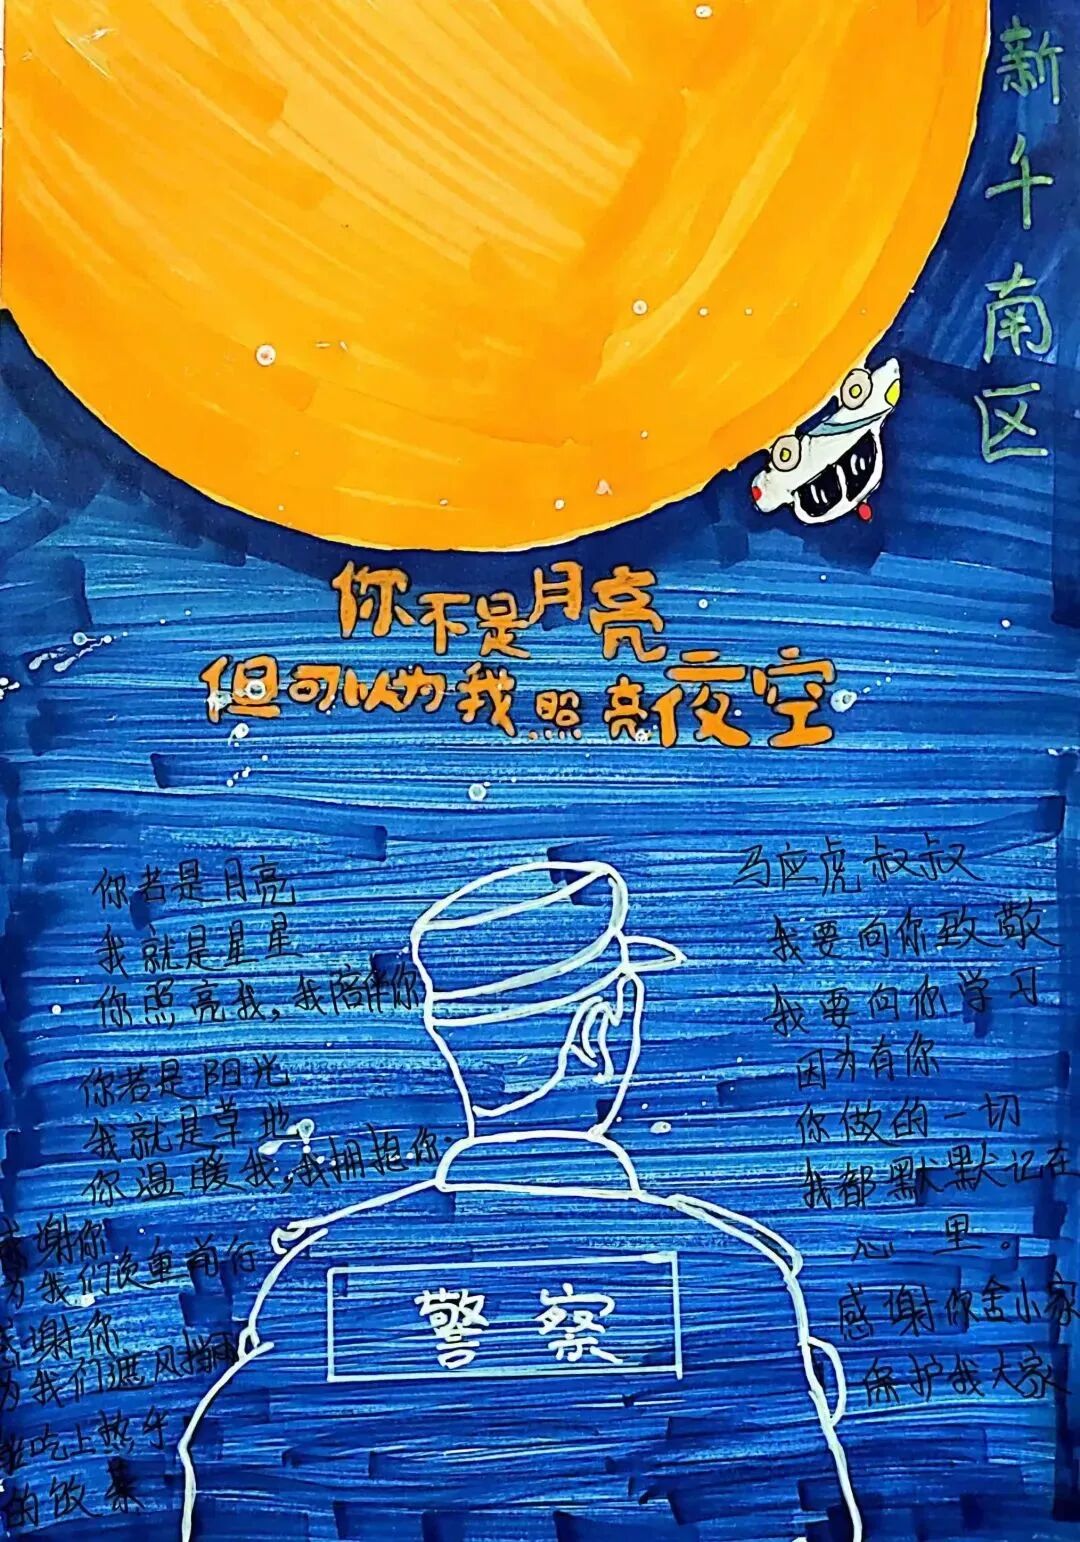 新千南区
你不是月亮
但可以为我照亮夜空
你若是月亮
我就是星星
你照亮我，我陪伴你
你若是阳光
我就是草地
你温暖我，我拥抱你
感谢你
为我们负重前行
感谢你
为我们遮风挡雨
吃上热乎
的饭菜
马应虎叔叔
我要向你致敬
我要向你学习
因为有你
你做的一切
我都默默记在
心里。
感谢你舍小家
保护我大家
警察